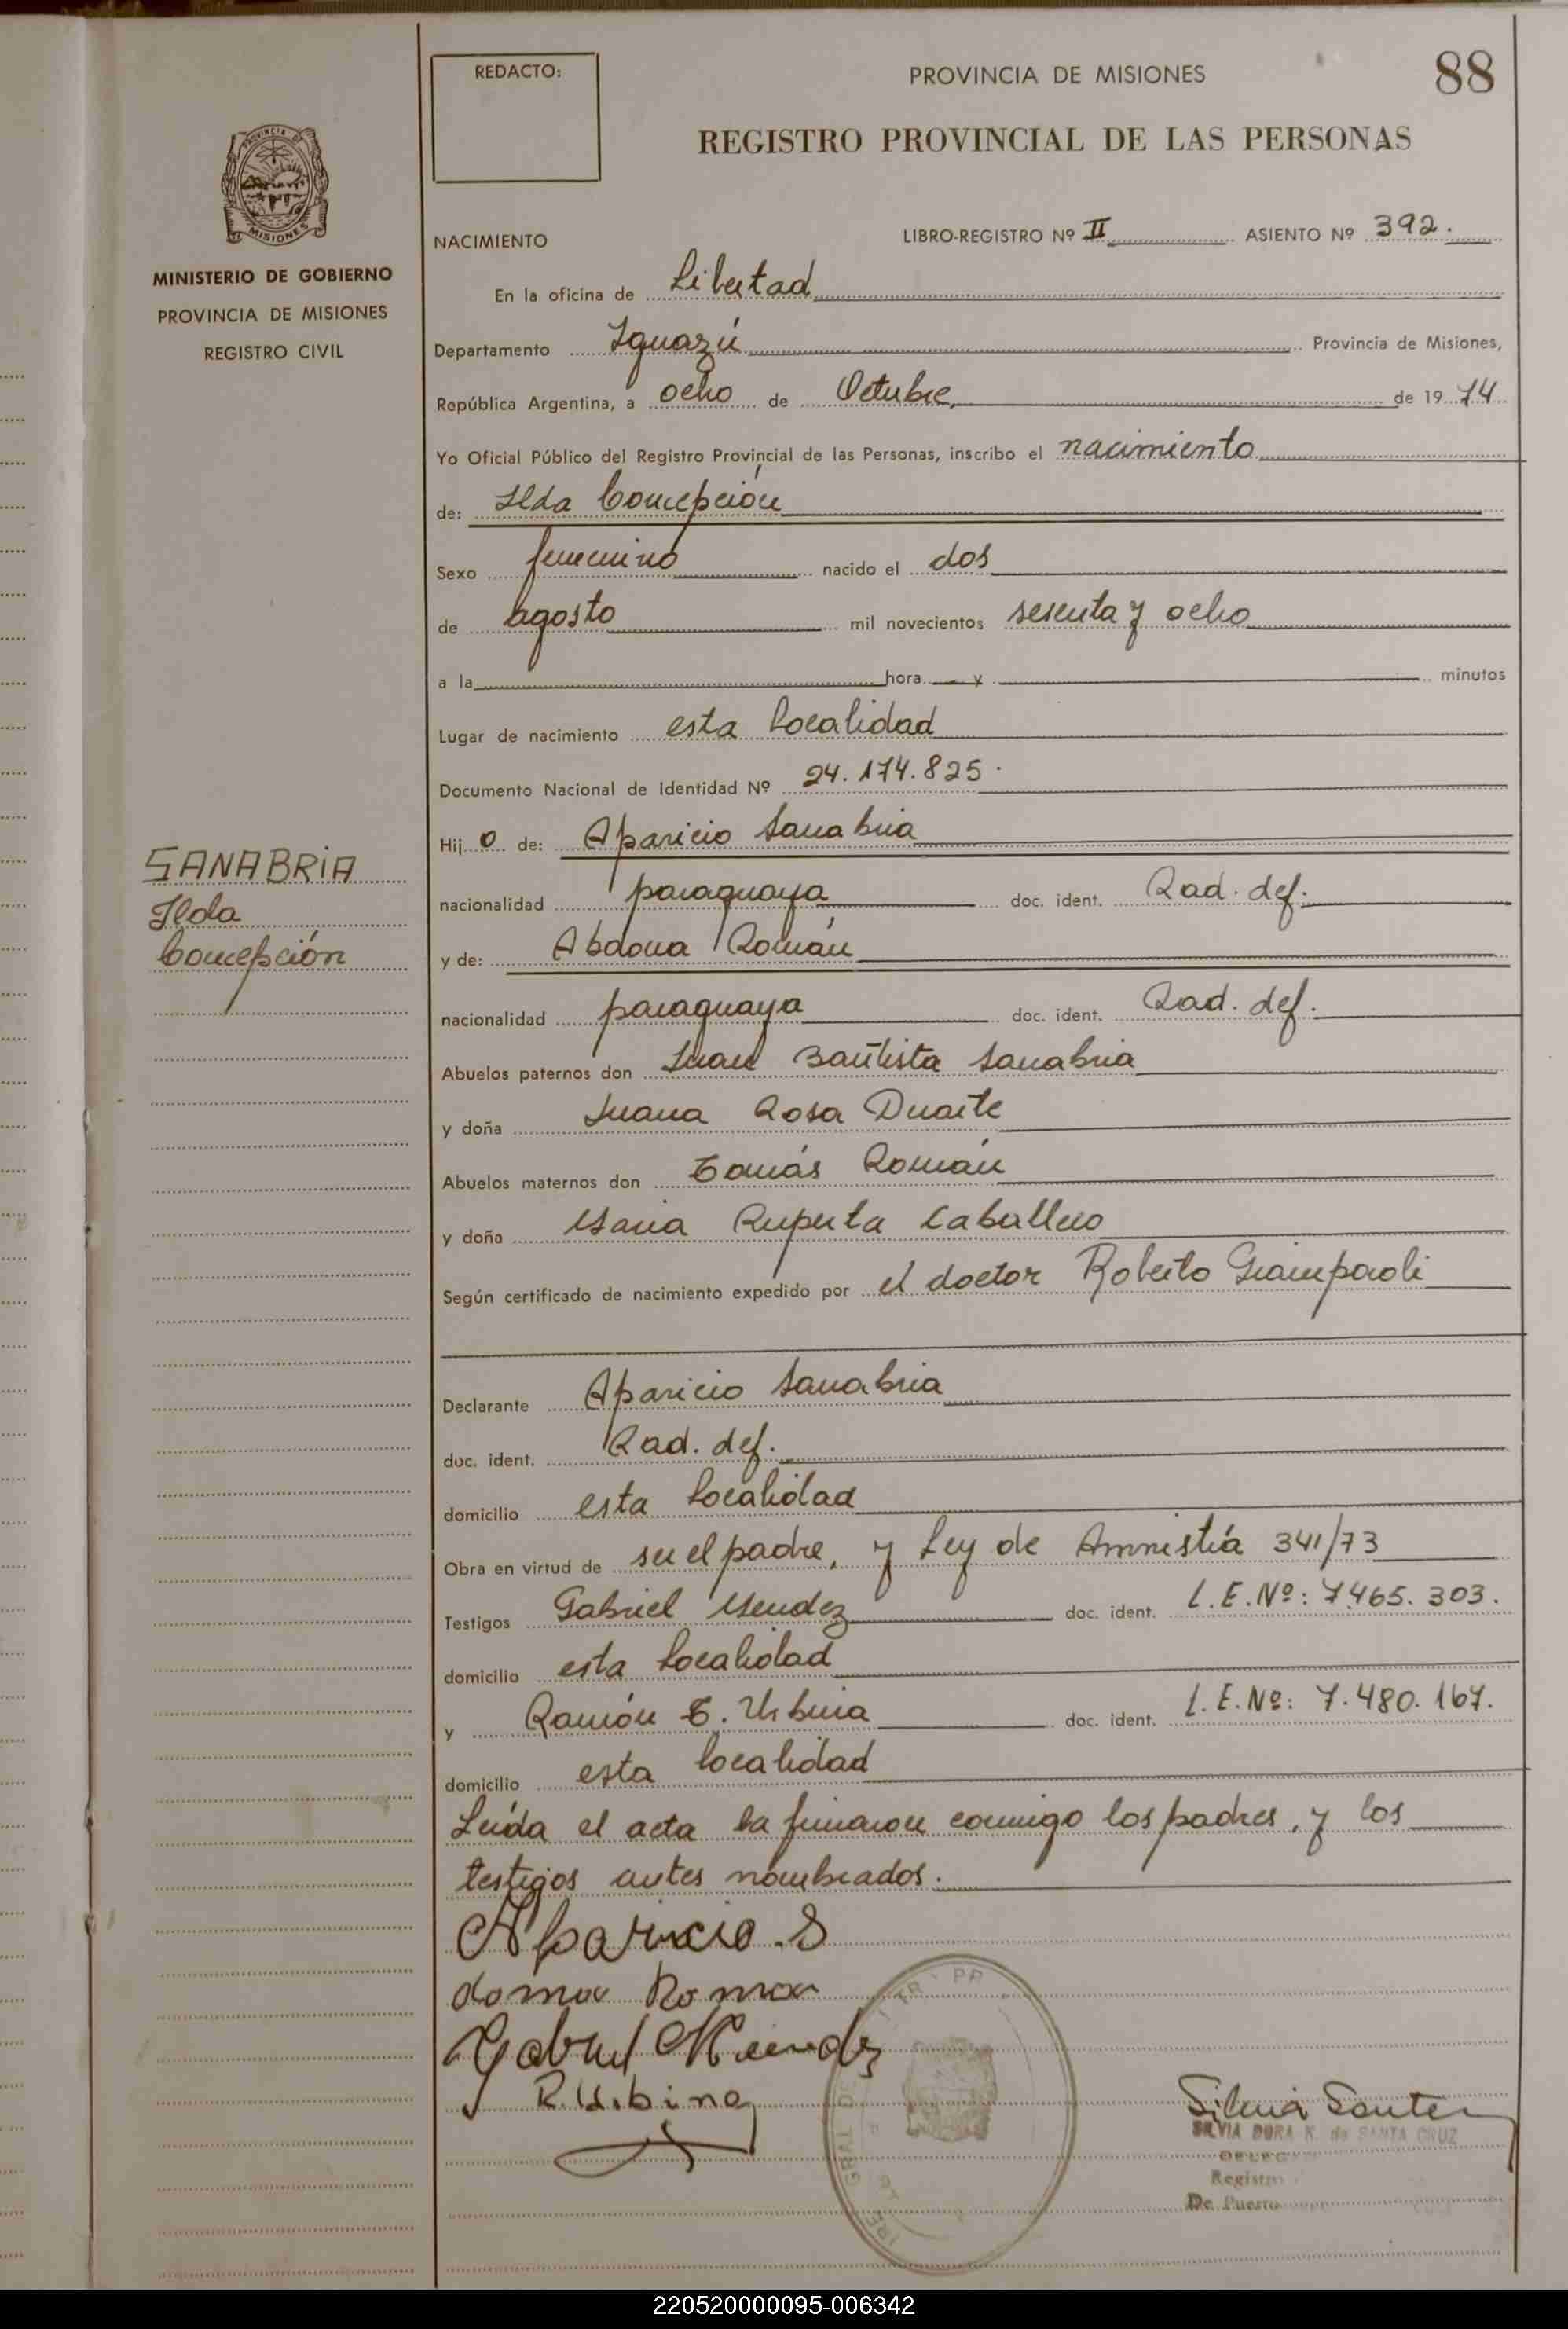 REDACTO:
PROVINCIA DE MISIONES
88
REGISTRO PROVINCIAL DE LAS PERSONAS
PROVINCIA DE
MISIONES
MINISTERIO DE GOBIERNO
PROVINCIA DE MISIONES
REGISTRO CIVIL
NACIMIENTO LIBRO-REGISTRO Nº II ASIENTO Nº 392.
En la oficina de Libertad
Departamento Iguazú Provincia de Misiones,
República Argentina, a ocho de Octubre de 1974
Yo Oficial Público del Registro Provincial de las Personas, inscribo el nacimiento
de: Ilda Concepción
Sexo femenino nacido el dos
de agosto mil novecientos sesenta y ocho
a la hora y minutos
Lugar de nacimiento esta localidad
Documento Nacional de Identidad Nº 24.174.825.
Hij o de: Aparicio Sanabria
nacionalidad paraguaya doc. ident. Rad. def.
y de: Abdona Román
nacionalidad paraguaya doc. ident. Rad. def.
Abuelos paternos don Juan Bautista Sanabria
y doña Juana Rosa Duarte
Abuelos maternos don Tomás Román
y doña Maria Ruperta Caballero
Según certificado de nacimiento expedido por el doctor Roberto Giampaoli
SANABRIA
Ilda
Concepción
Declarante Aparicio Sanabria
doc. ident. Rad. def.
domicilio esta localidad
Obra en virtud de ser el padre, y Ley de Amnistía 341/73
Testigos Gabriel Mendez doc. ident. L.E.Nº: 7.465.303.
domicilio esta localidad
y Ramón E. Urbina doc. ident. L.E.Nº: 7.480.167.
domicilio esta localidad
Leída el acta la firmaron conmigo los padres, y los
testigos antes nombrados.
Aparicio S
dona Roman
Gabriel Mendez
R. Urbina
SILVIA DORA K. de SANTA CRUZ
Registro
De Puerto
220520000095-006342